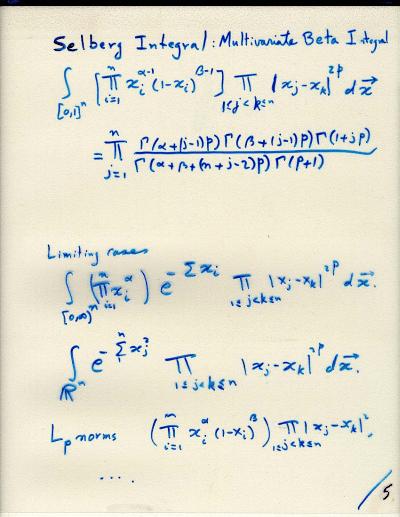 Selberg Integral: Multivariate Beta Integral
∫_{[0,1]^n} [∏_{i=1}^{n} x_i^{α-1} (1-x_i)^{β-1}] ∏_{1≤j<k≤n} |x_j - x_k|^{2p} dx⃗
= ∏_{j=1}^{n} Γ(α+(j-1)p) Γ(β+(j-1)p) Γ(1+jp) / Γ(α+β+(n+j-2)p) Γ(p+1)
Limiting cases
∫_{[0,∞)^n} (∏_{i=1}^{n} x_i^α) e^{-∑x_i} ∏_{1≤j<k≤n} |x_j - x_k|^{2p} dx⃗.
∫_{ℝ^n} e^{-∑^{n} x_j^2} ∏_{1≤j<k≤n} |x_j - x_k|^{2p} dx⃗.
L_p norms (∏_{i=1}^{n} x_i^α (1-x_i)^β) ∏_{1≤j<k≤n} |x_j - x_k|^2,
....
/5